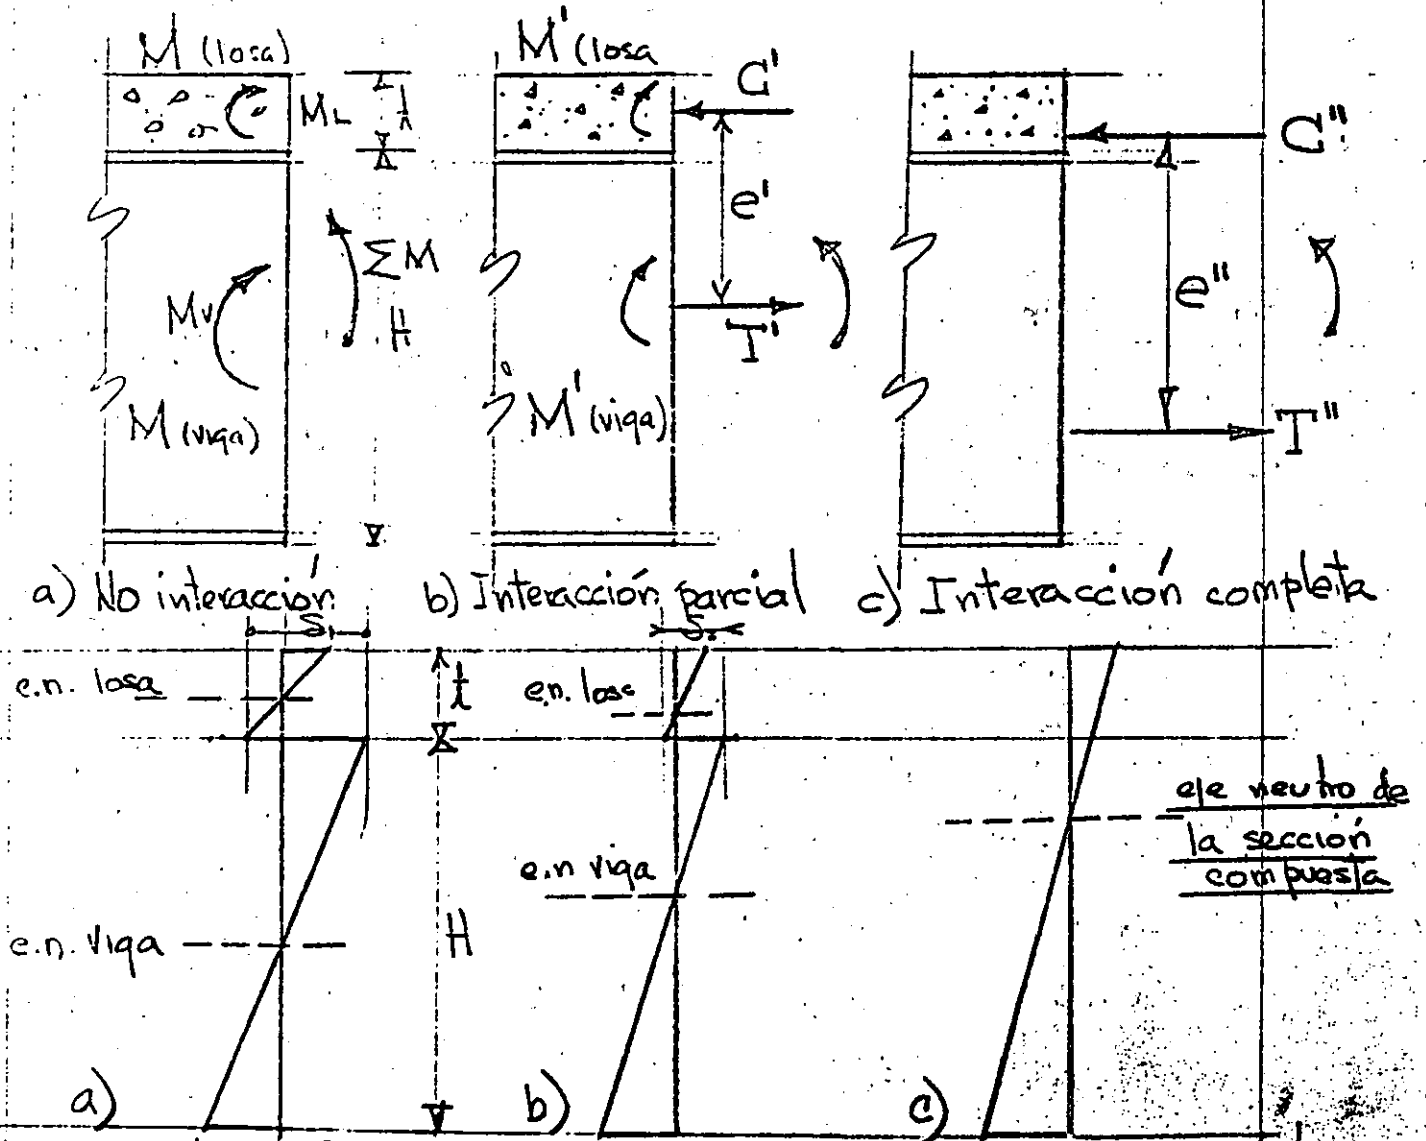 M (losa)
M' (losa
C'
ML
t
C"
e'
ΣM
Mv
H
T'
e"
M (viga)
M' (viga)
T"
a) No interacción
b) Interacción parcial
c) Interacción completa
S.
S.
e.n. losa
t
e.n. losa
eje neutro de
la sección
compuesta
e.n viga
e.n. viga
H
a)
b)
c)